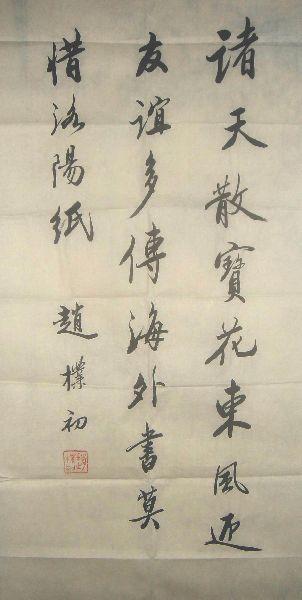 諸天散寶花東風迎
友誼多傳海外書莫
惜洛陽紙
趙樸初